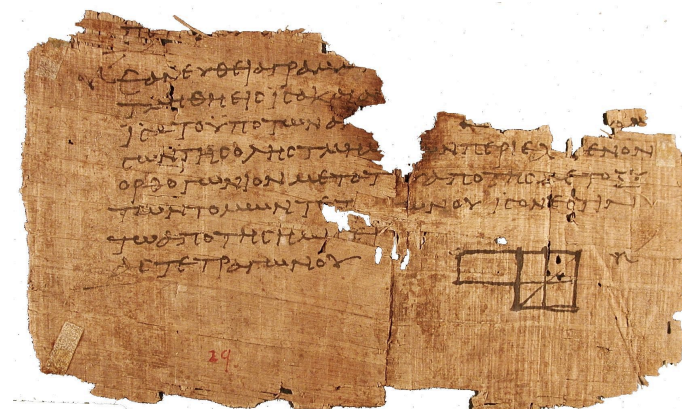 ΕΑΝΕΥΘΕΙΑΓΡΑΜΜ
ΤΜΗΘΗΕΙϹΙϹΑΚΑΙΑ
ΙϹΑΤΟΥΠΟΤΩΝΑ
ϹΩΝΤΗϹΟΛΗϹΤΜΗΜ ΩΝΠΕΡΙΕΧΟΜΕΝΟΝ
ΟΡΘΟΓΩΝΙΟΝΜΕΤΑΤΟΥ ΑΠΟΤΗϹΜΕΤΟΞΥ
ΤΩΝΤΟΜΩΝΤΕΤ ΩΝΟΥΙϹΟΝΕϹΤΙΝ
ΤΩΑΠΟΤΗϹΗΜΙϹΕΙ
ΑϹΤΕΤΡΑΓΩΝΟΥ
29.